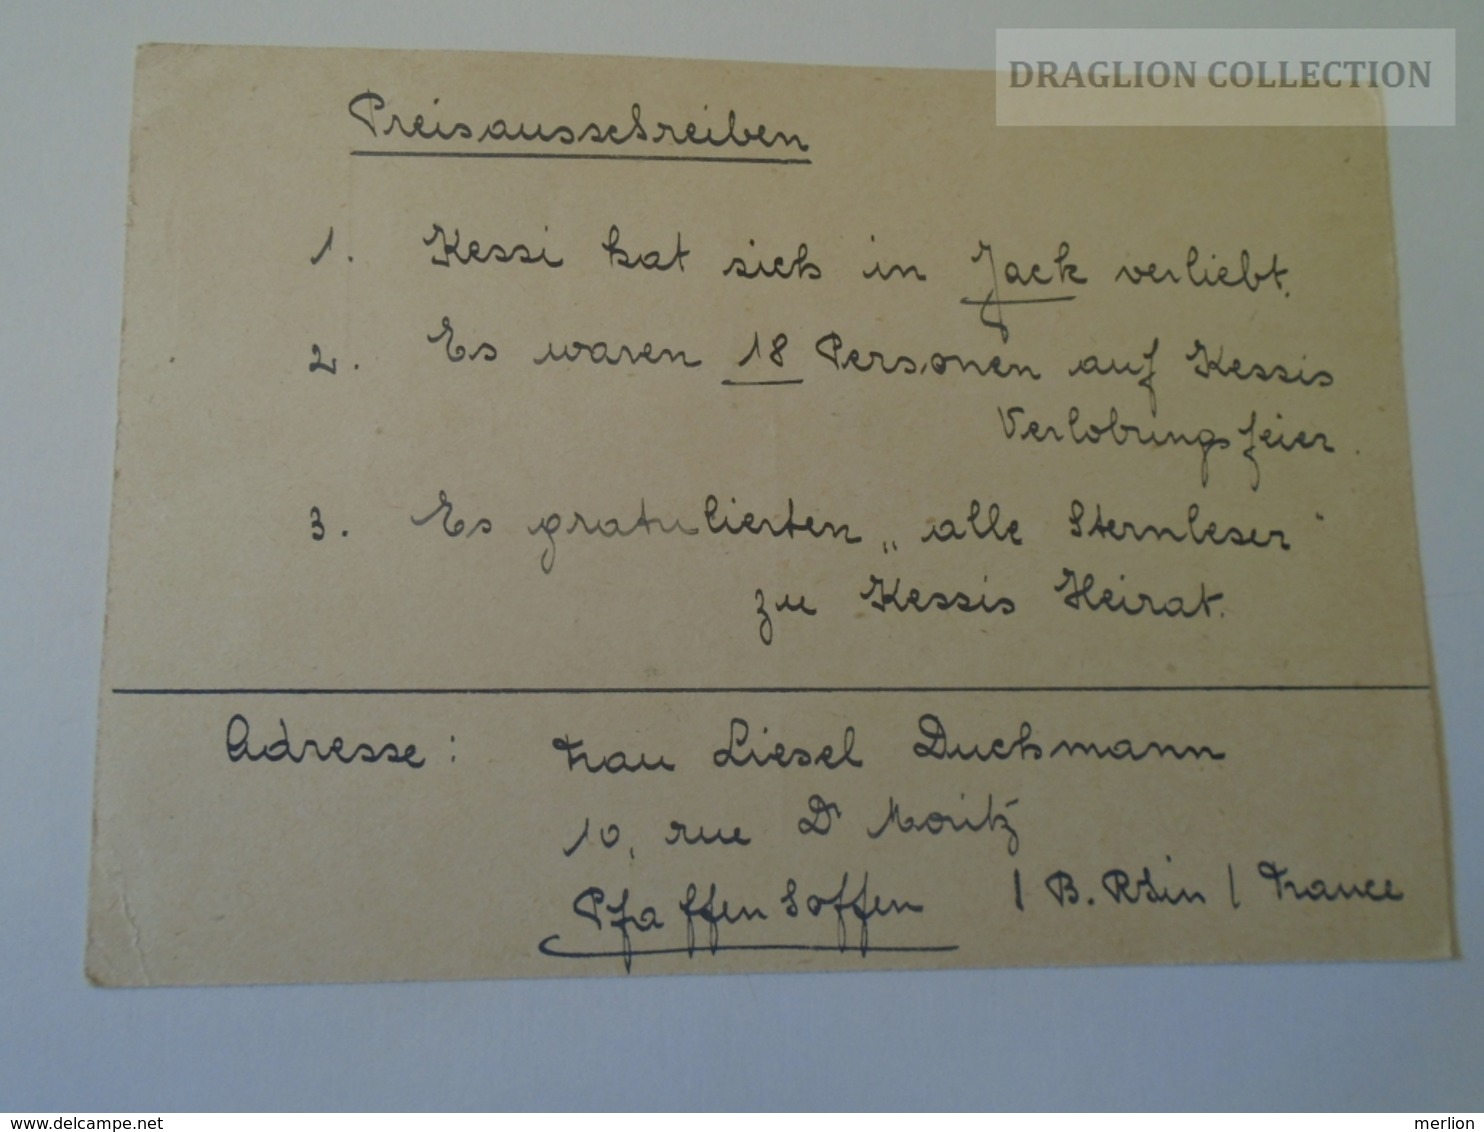 DRAGLION COLLECTION
Preisausschreiben
1. Kessi hat sich in Jack verliebt.
2. Es waren 18 Personen auf Kessis
Verlobungsfeier.
3. Es gratulierten „alle Sternleser“
zu Kessis Heirat.
Adresse: Frau Liesel Duchmann
10, rue Dr Moritz
Pfaffenhoffen / B. Rhin / France
delcampe.net
merlion